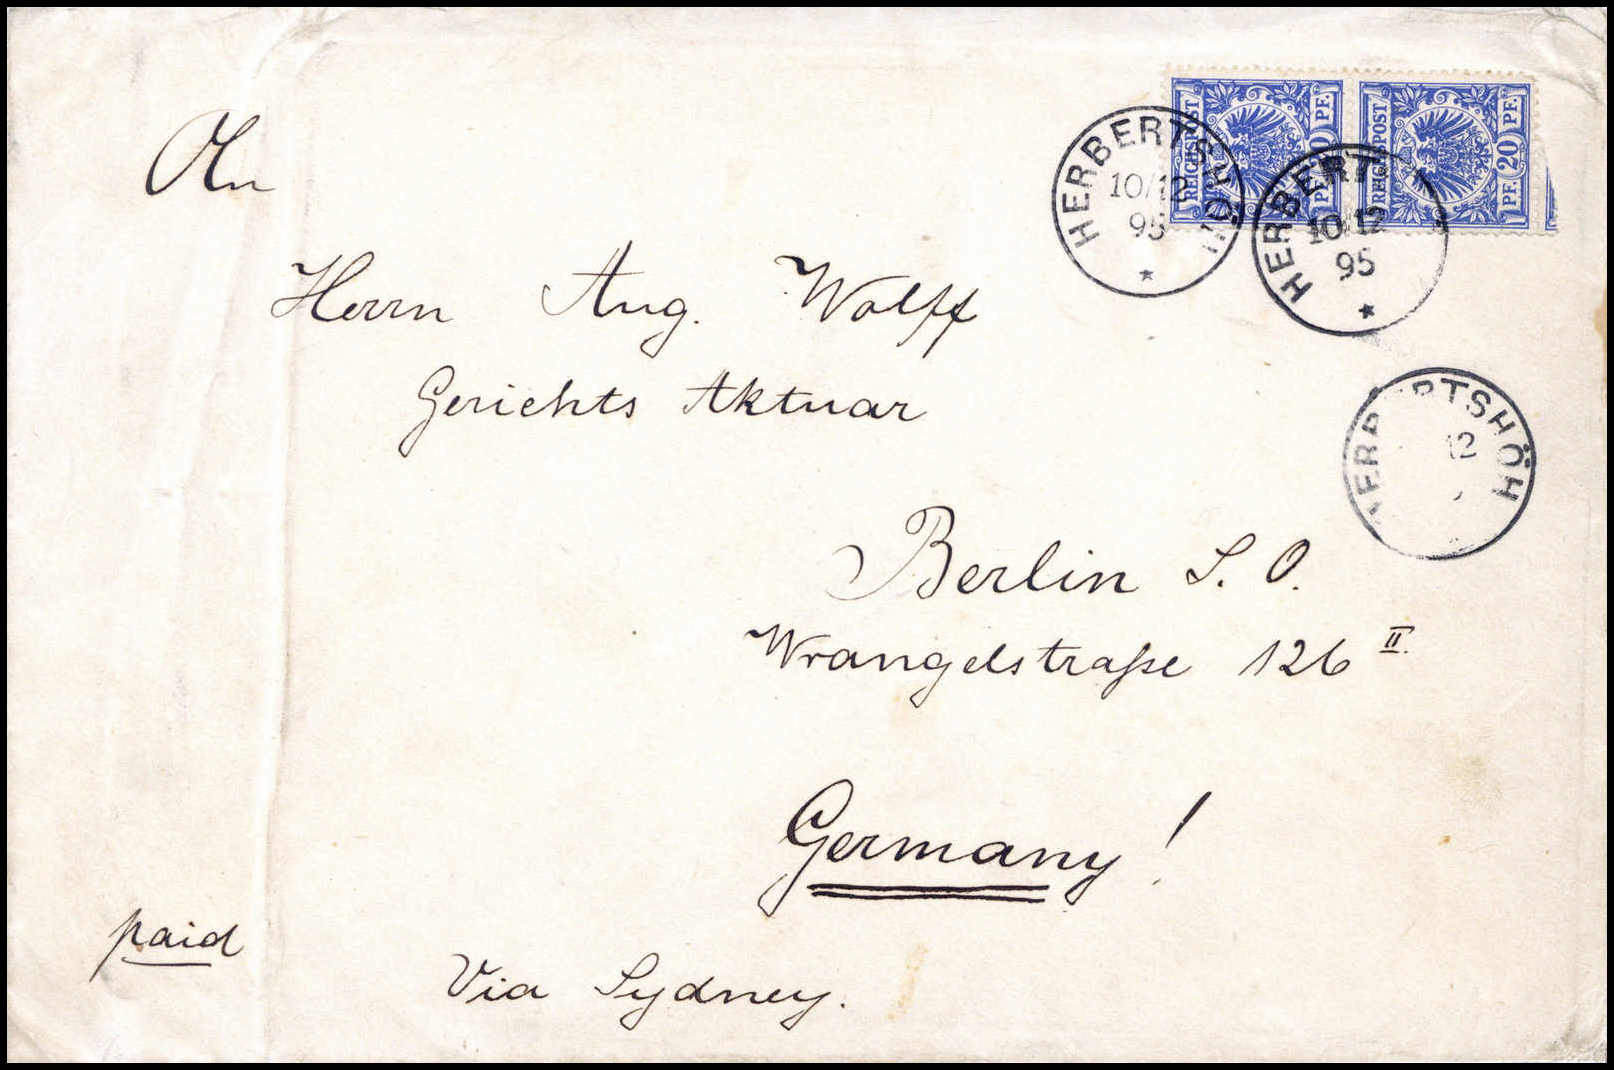 REICHSPOST PF. 20 PF.
REICHSPOST PF. 20 PF.
HERBERTSHÖH
10/12
95
HERBERT
10/12
95
An
Herrn Aug. Wolff
Gerichts Aktuar
HERBERTSHÖH
12
Berlin S. O.
Wrangelstraße 126 II.
Germany!
paid
Via Sydney.